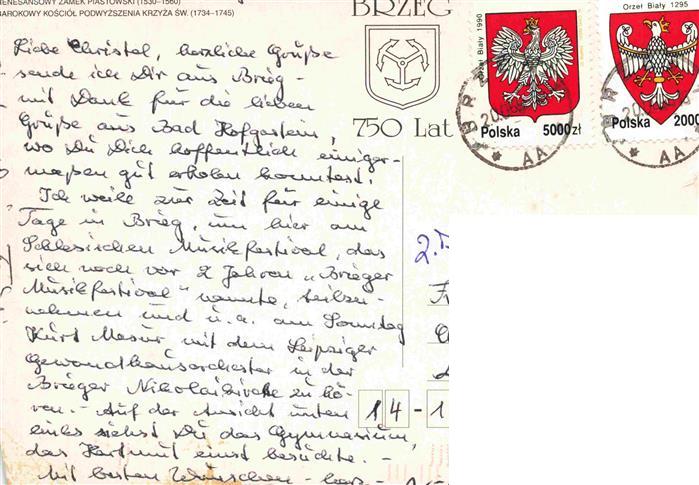 RENESANSOWY ZAMEK PIASTOWSKI (1530–1560)
BAROKOWY KOŚCIÓŁ PODWYŻSZENIA KRZYŻA ŚW. (1734–1745)
Liebe Christel, herzliche Grüße
sende ich Dir aus Brieg -
mit Dank für die lieben
Grüße aus Bad Hofgastein,
wo Du Dich hoffentlich einiger-
maßen gut erholen konntest.
Ich weile zur Zeit für einige
Tage in Brieg, um hier am
Schlesischen Musikfestival, das
sich noch vor 2 Jahren „Brieger
Musikfestival" nannte, teilzu-
nehmen und u. a. am Sonntag
Kurt Masur mit dem Leipziger
Gewandhausorchester in der
Brieger Nikolaikirche zu hö-
ren. - Auf der Ansicht unten
links siehst Du das Gymnasium,
das Hartmut einst besuchte. -
Mit besten Wünschen - herz-
BRZEG
750 Lat
Orzeł Biały 1990
Polska 5000 zł
Orzeł Biały 1295
Polska 2000
BRZ
20.0
* AA
20.
* AA
2.
14-1